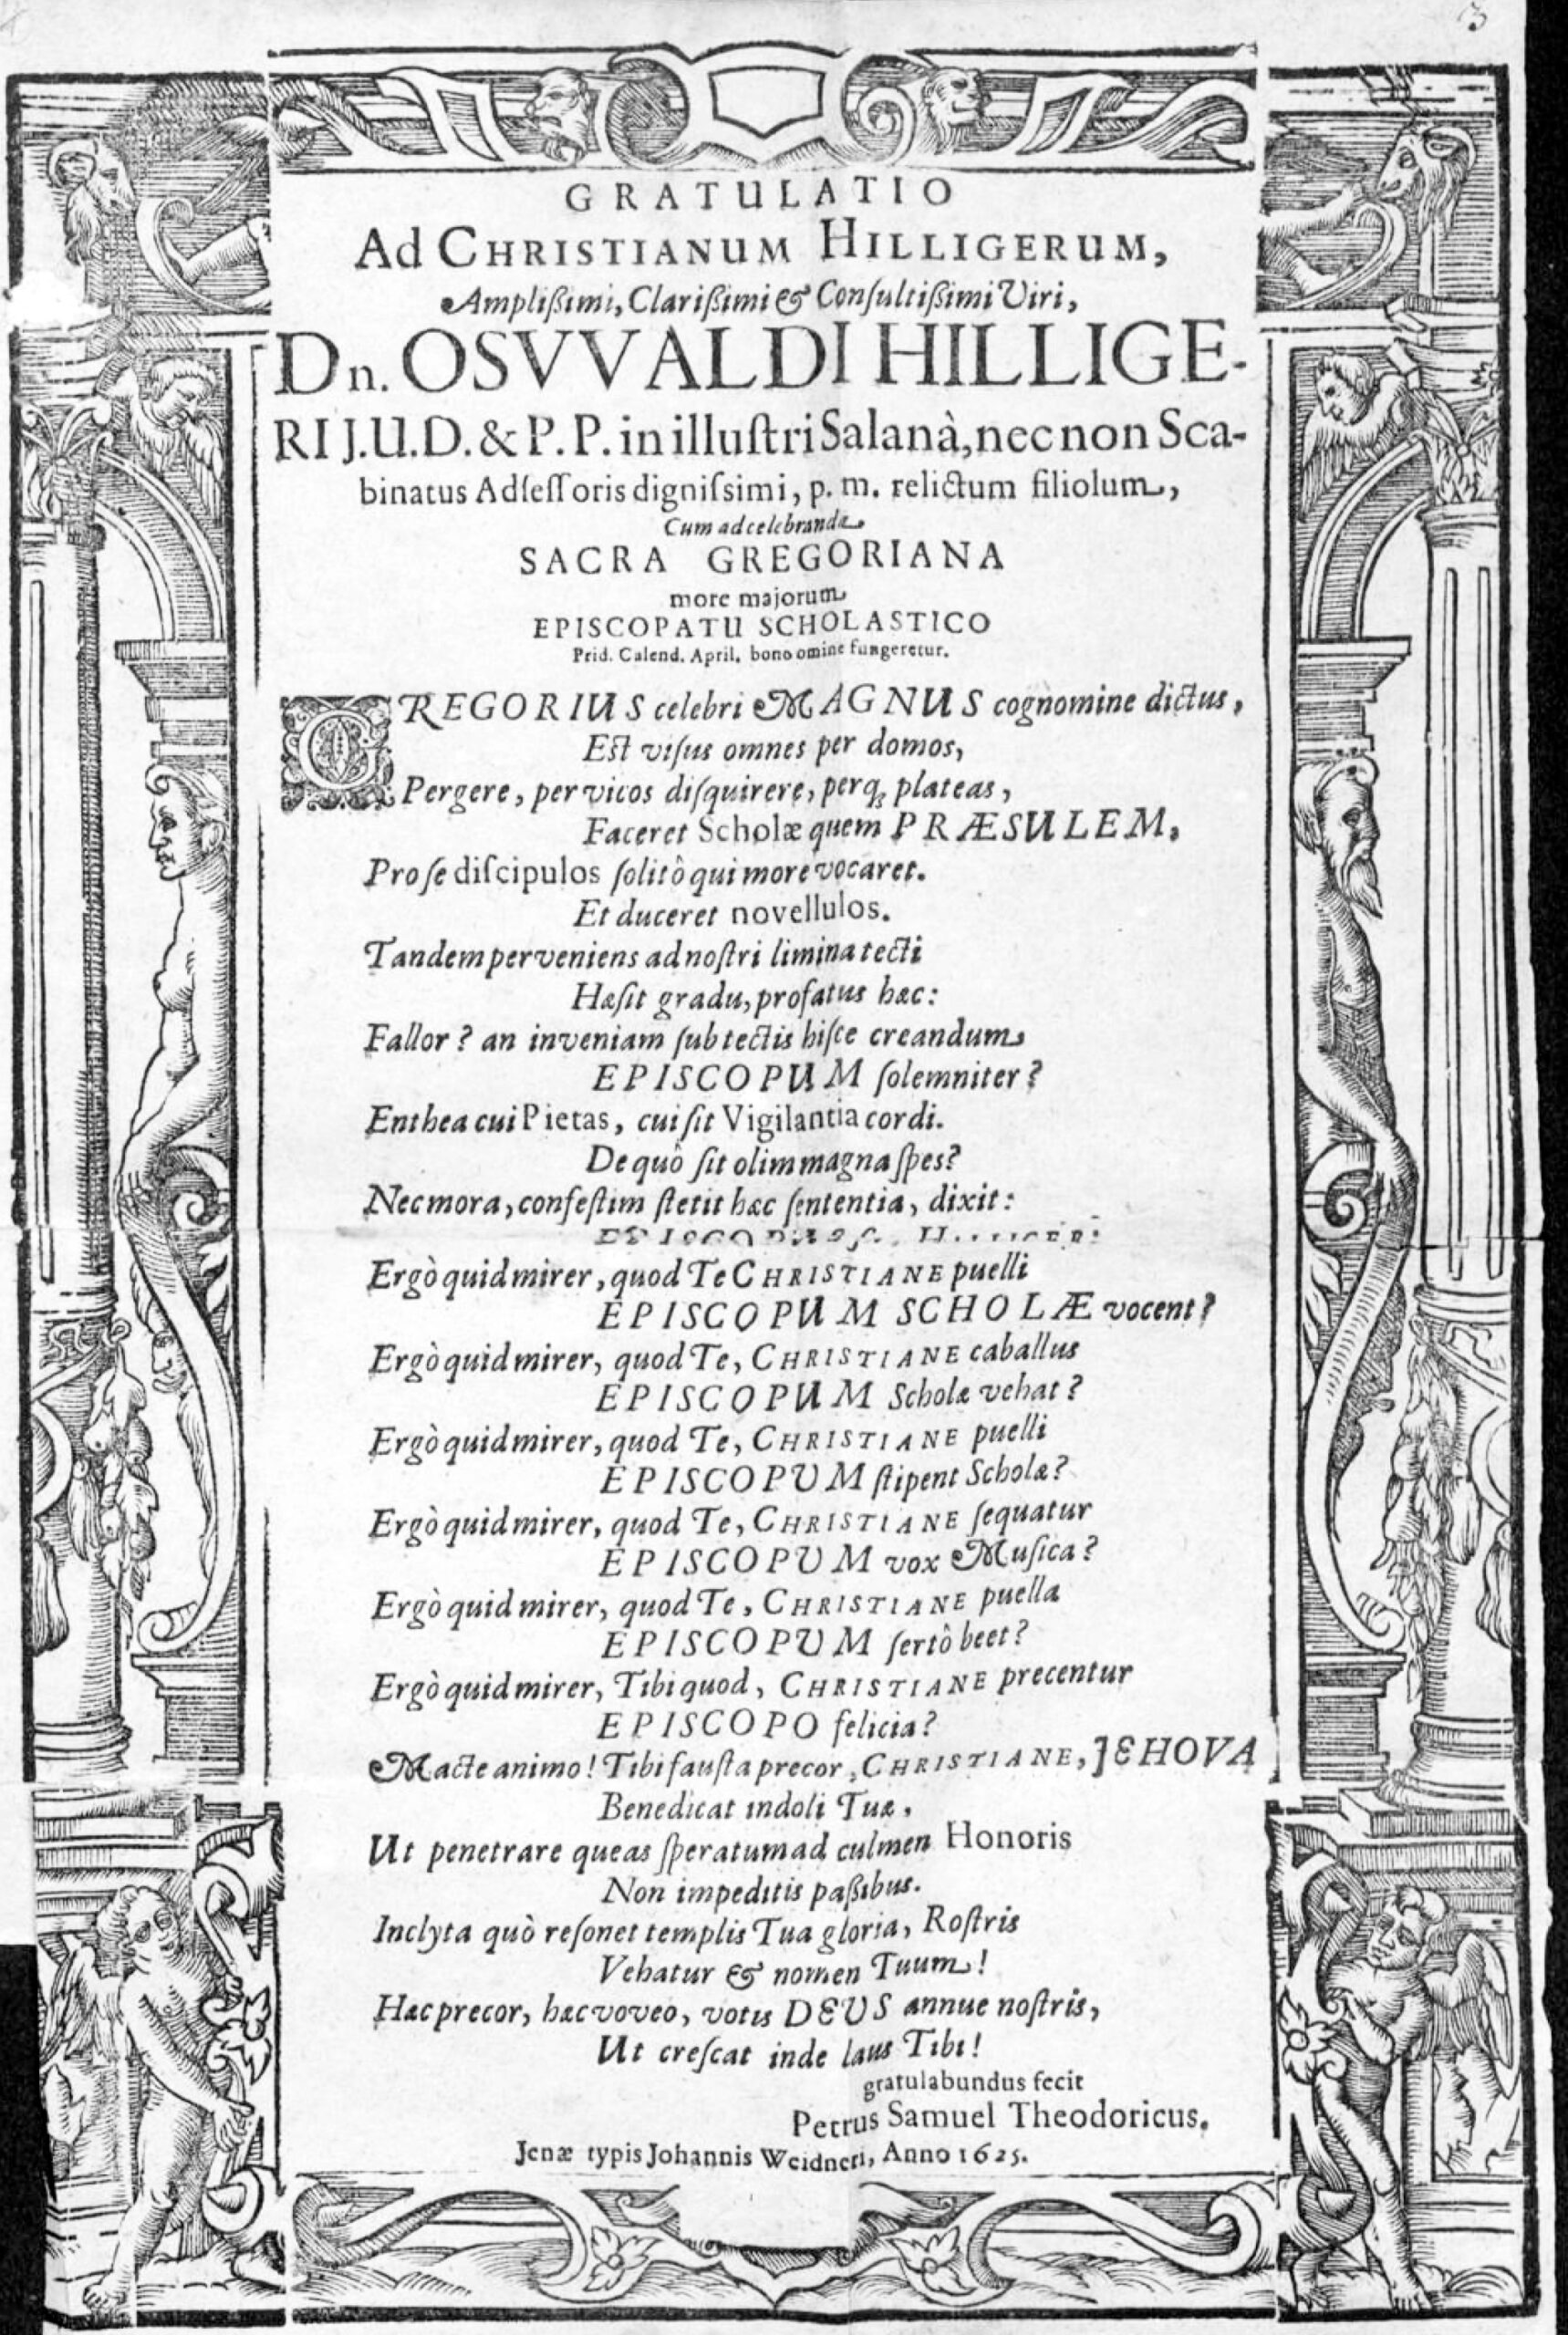 3
GRATULATIO
Ad CHRISTIANUM HILLIGERUM,
Amplißimi, Clarißimi & Conſultißimi Viri,
Dn. OSVVALDI HILLIGE-
RI J.U.D. & P.P. in illuſtri Salanâ, nec non Sca-
binatus Adſeſſoris digniſsimi, p. m. relictum filiolum,
Cum ad celebranda
SACRA GREGORIANA
more majorum
EPISCOPATU SCHOLASTICO
Prid. Calend. April. bono omine fungeretur.
GREGORIUS celebri MAGNUS cognomine dictus,
Eſt viſus omnes per domos,
Pergere, per vicos diſquirere, perq; plateas,
Faceret Scholæ quem PRÆSULEM,
Pro ſe diſcipulos ſolitô qui more vocaret.
Et duceret novellulos.
Tandem perveniens ad noſtri limina tecti
Hæſit gradu, profatus hæc:
Fallor? an inveniam ſub tectis hiſce creandum
EPISCOPUM ſolemniter?
Enthea cui Pietas, cui ſit Vigilantia cordi.
De quô ſit olim magna ſpes?
Nec mora, confeſtim ſtetit hæc ſententia, dixit:
Ergò quid mirer, quod Te CHRISTIANE puelli
EPISCOPUM SCHOLÆ vocent?
Ergò quid mirer, quod Te, CHRISTIANE caballus
EPISCOPUM Scholæ vehat?
Ergò quid mirer, quod Te, CHRISTIANE puelli
EPISCOPUM ſtipent Scholæ?
Ergò quid mirer, quod Te, CHRISTIANE ſequatur
EPISCOPUM vox Muſica?
Ergò quid mirer, quod Te, CHRISTIANE puella
EPISCOPUM ſertô beet?
Ergò quid mirer, Tibi quod, CHRISTIANE precentur
EPISCOPO felicia?
Macte animo! Tibi fauſta precor, CHRISTIANE, JEHOVA
Benedicat indoli Tuæ,
Ut penetrare queas ſperatum ad culmen Honoris
Non impeditis paßibus.
Inclyta quò reſonet templis Tua gloria, Roſtris
Vehatur & nomen Tuum!
Hæc precor, hæc voveo, votis DEUS annue noſtris,
Ut creſcat inde laus Tibi!
gratulabundus fecit
Petrus Samuel Theodoricus.
Jenæ typis Johannis Weidneri, Anno 1625.